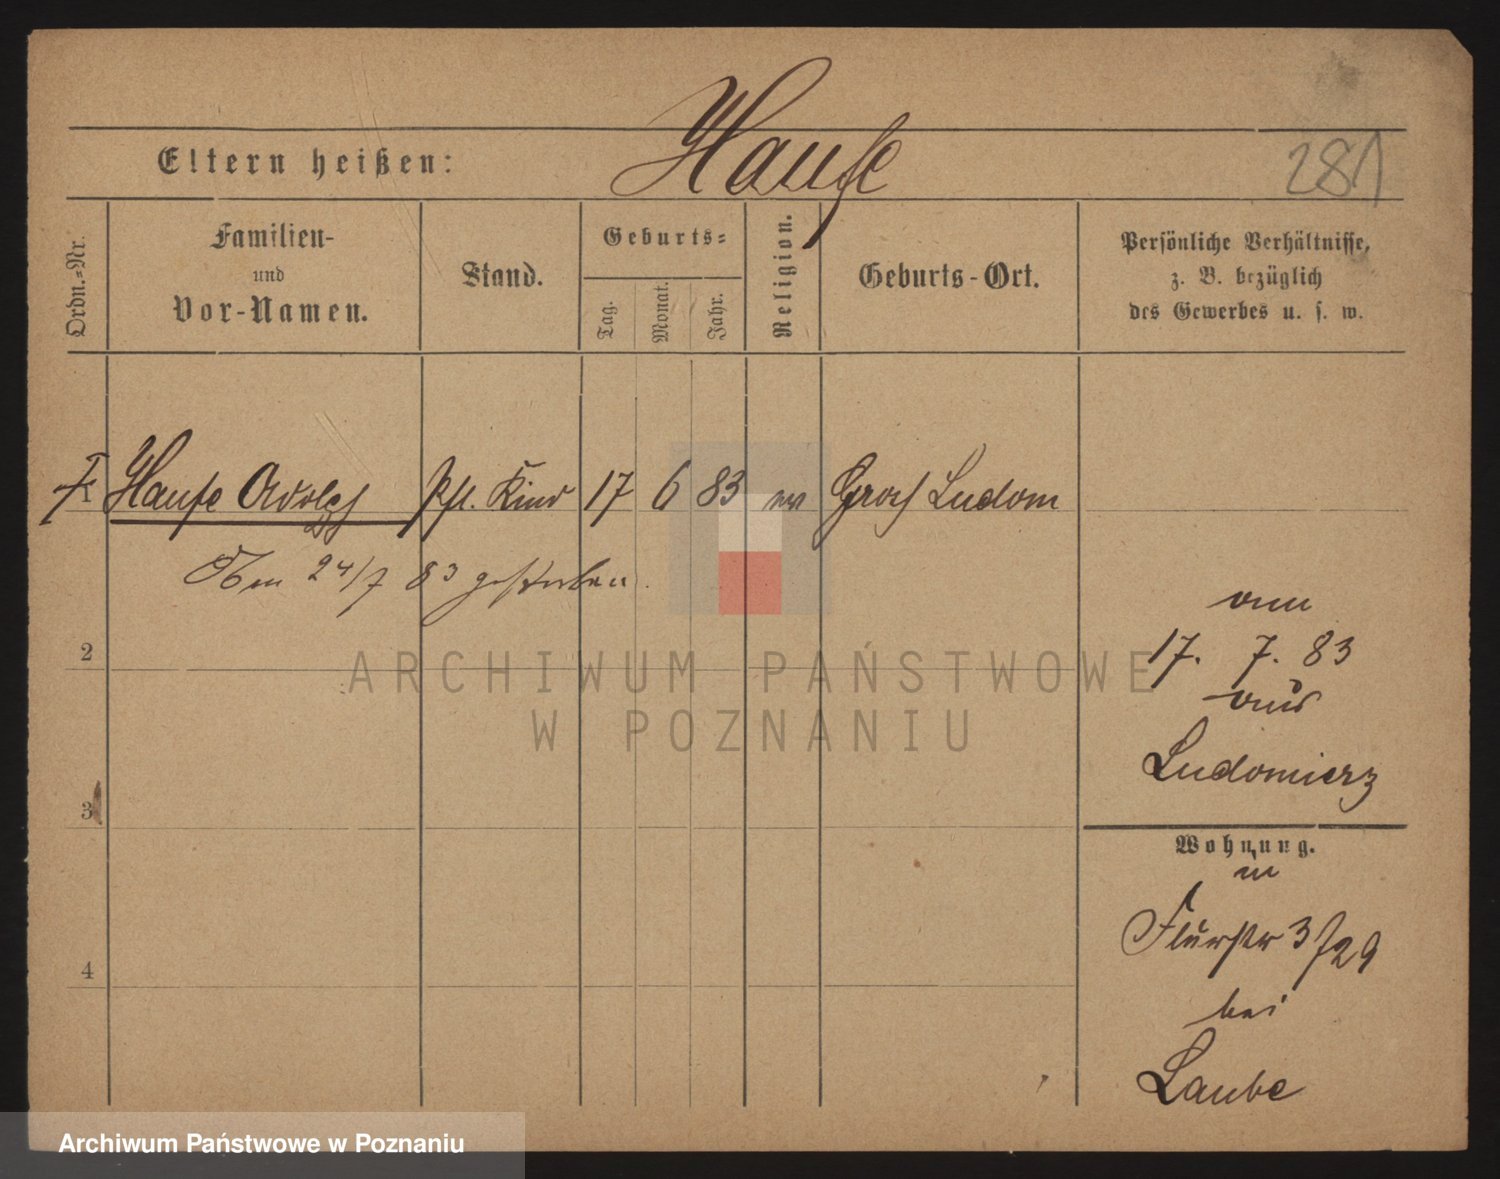 Haufe
Eltern heißen:
281
Ordn.-Nr.
Familien-
und
Vor-Namen.
Stand.
Geburts-
Tag.
Monat.
Jahr.
Religion.
Geburts-Ort.
Persönliche Verhältnisse,
z. B. bezüglich
des Gewerbes u. s. w.
Haufe Adolf Pfl. Kind 17 6 83 ev Groß Ludom
Am 24/7 83 gestorben.
2
3
4
am
17. 7. 83
aus
Ludomierz
Wohnung.
in
Flurstr 3/29
bei
Laube
ARCHIWUM PAŃSTWOWE
W POZNANIU
Archiwum Państwowe w Poznaniu